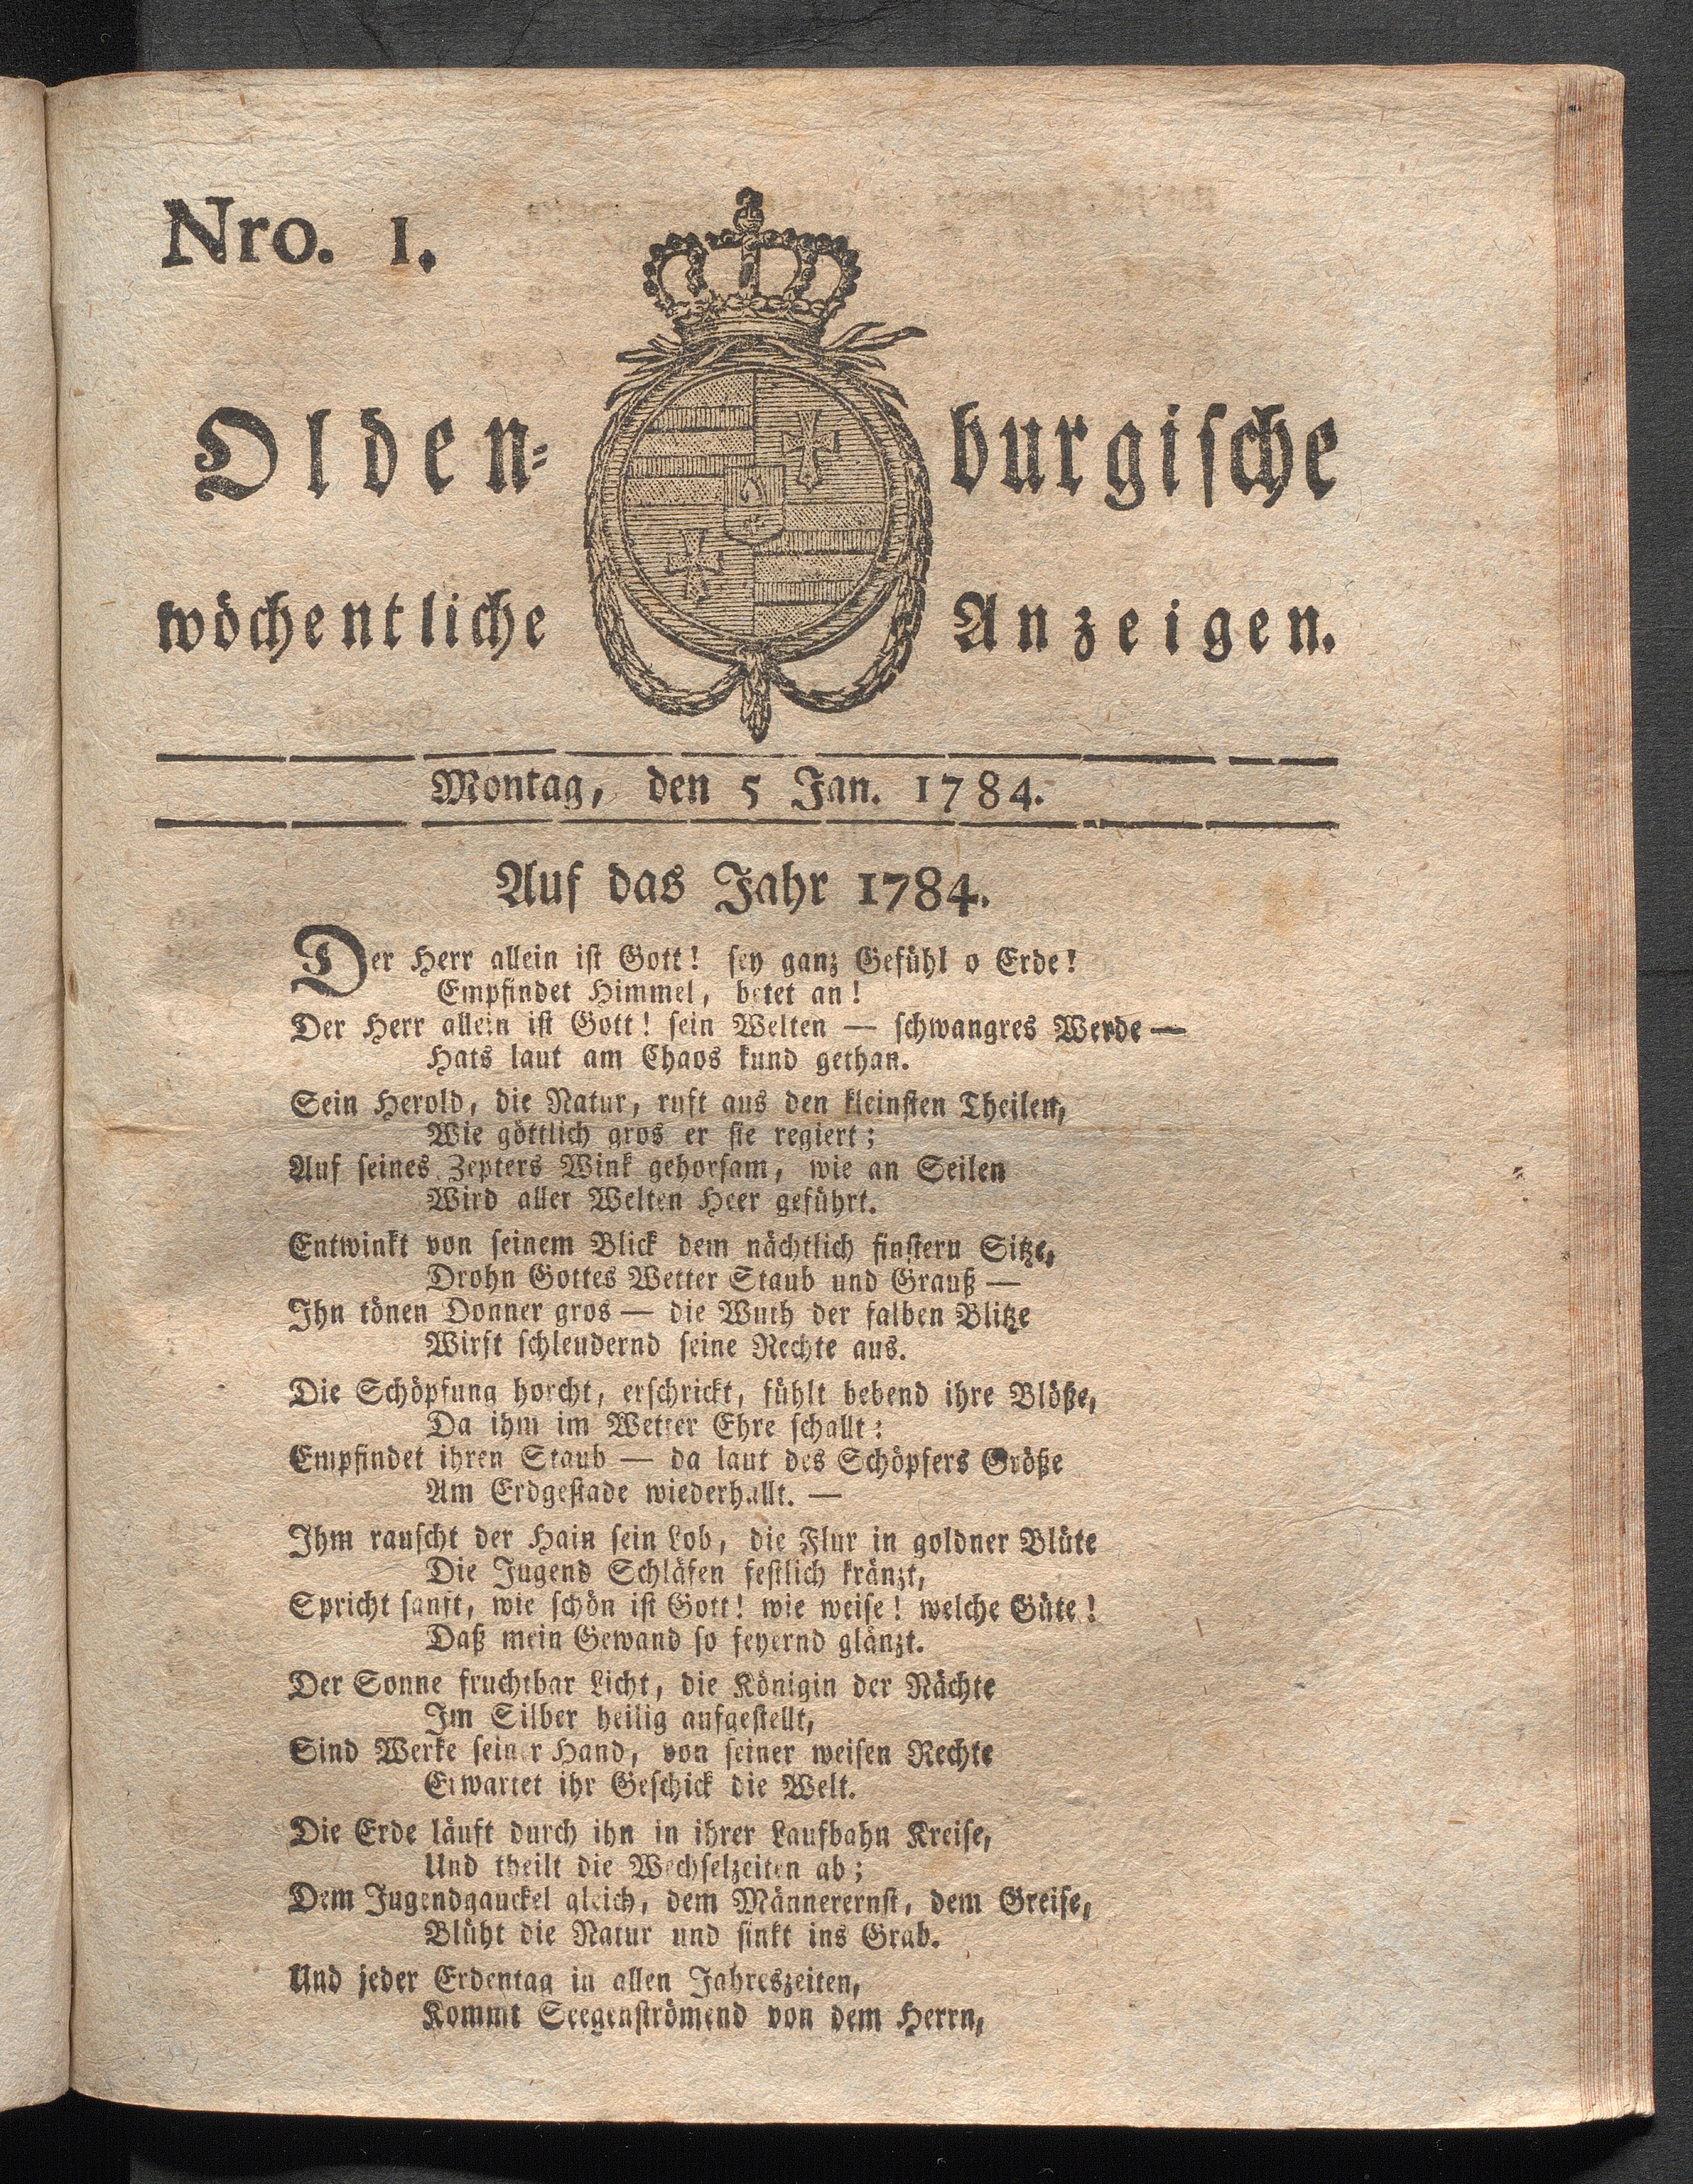 Nro. 1.
Olden-burgische
wöchentliche Anzeigen.
Montag, den 5 Jan. 1784.
Auf das Jahr 1784.
Der Herr allein ist Gott! sey ganz Gefühl o Erde!
Empfindet Himmel, betet an!
Der Herr allein ist Gott! sein Welten — schwangres Werde —
Hats laut am Chaos kund gethan.
Sein Herold, die Natur, ruft aus den kleinsten Theilen,
Wie göttlich gros er sie regiert;
Auf seines Zepters Wink gehorsam, wie an Seilen
Wird aller Welten Heer geführt.
Entwinkt von seinem Blick dem nächtlich finstern Sitze,
Drohn Gottes Wetter Staub und Grauß —
Ihn tönen Donner gros — die Wuth der falben Blitze
Wirft schleudernd seine Rechte aus.
Die Schöpfung horcht, erschrickt, fühlt bebend ihre Blöße,
Da ihm im Wetter Ehre schallt:
Empfindet ihren Staub — da laut des Schöpfers Größe
Am Erdgestade wiederhallt. —
Ihm rauscht der Hain sein Lob, die Flur in goldner Blüte
Die Jugend Schläfen festlich kränzt,
Spricht sanft, wie schön ist Gott! wie weise! welche Güte!
Daß mein Gewand so feyernd glänzt.
Der Sonne fruchtbar Licht, die Königin der Nächte
Im Silber heilig aufgestellt,
Sind Werke seiner Hand, von seiner weisen Rechte
Erwartet ihr Geschick die Welt.
Die Erde läuft durch ihn in ihrer Laufbahn Kreise,
Und theilt die Wechselzeiten ab;
Dem Jugendgauckel gleich, dem Männerernst, dem Greise,
Blüht die Natur und sinkt ins Grab.
Und jeder Erdentag in allen Jahreszeiten,
Kommt Seegenströmend von dem Herrn,